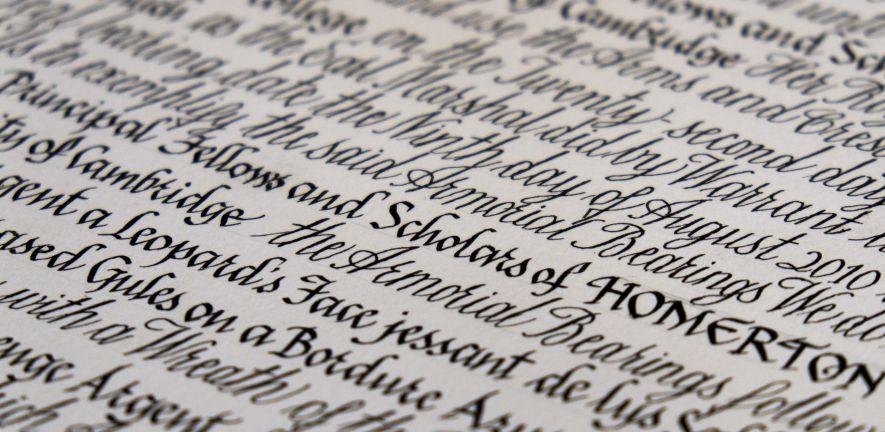 and Sch
of Cambridge Her
use the Arms and Crest
College on the Twenty-second day
as the Earl Marshal did by Warrant
bearing date the Ninth day of August 2010
to exemplify the said Armorial Bearings We do
Principal Fellows and Scholars of HOMERTON
ty of Cambridge the Armorial Bearings follow
gent a Leopard's Face jessant de lys
ased Gules on a Bordure Azu
with a Wreath of the
enge Argent
hich